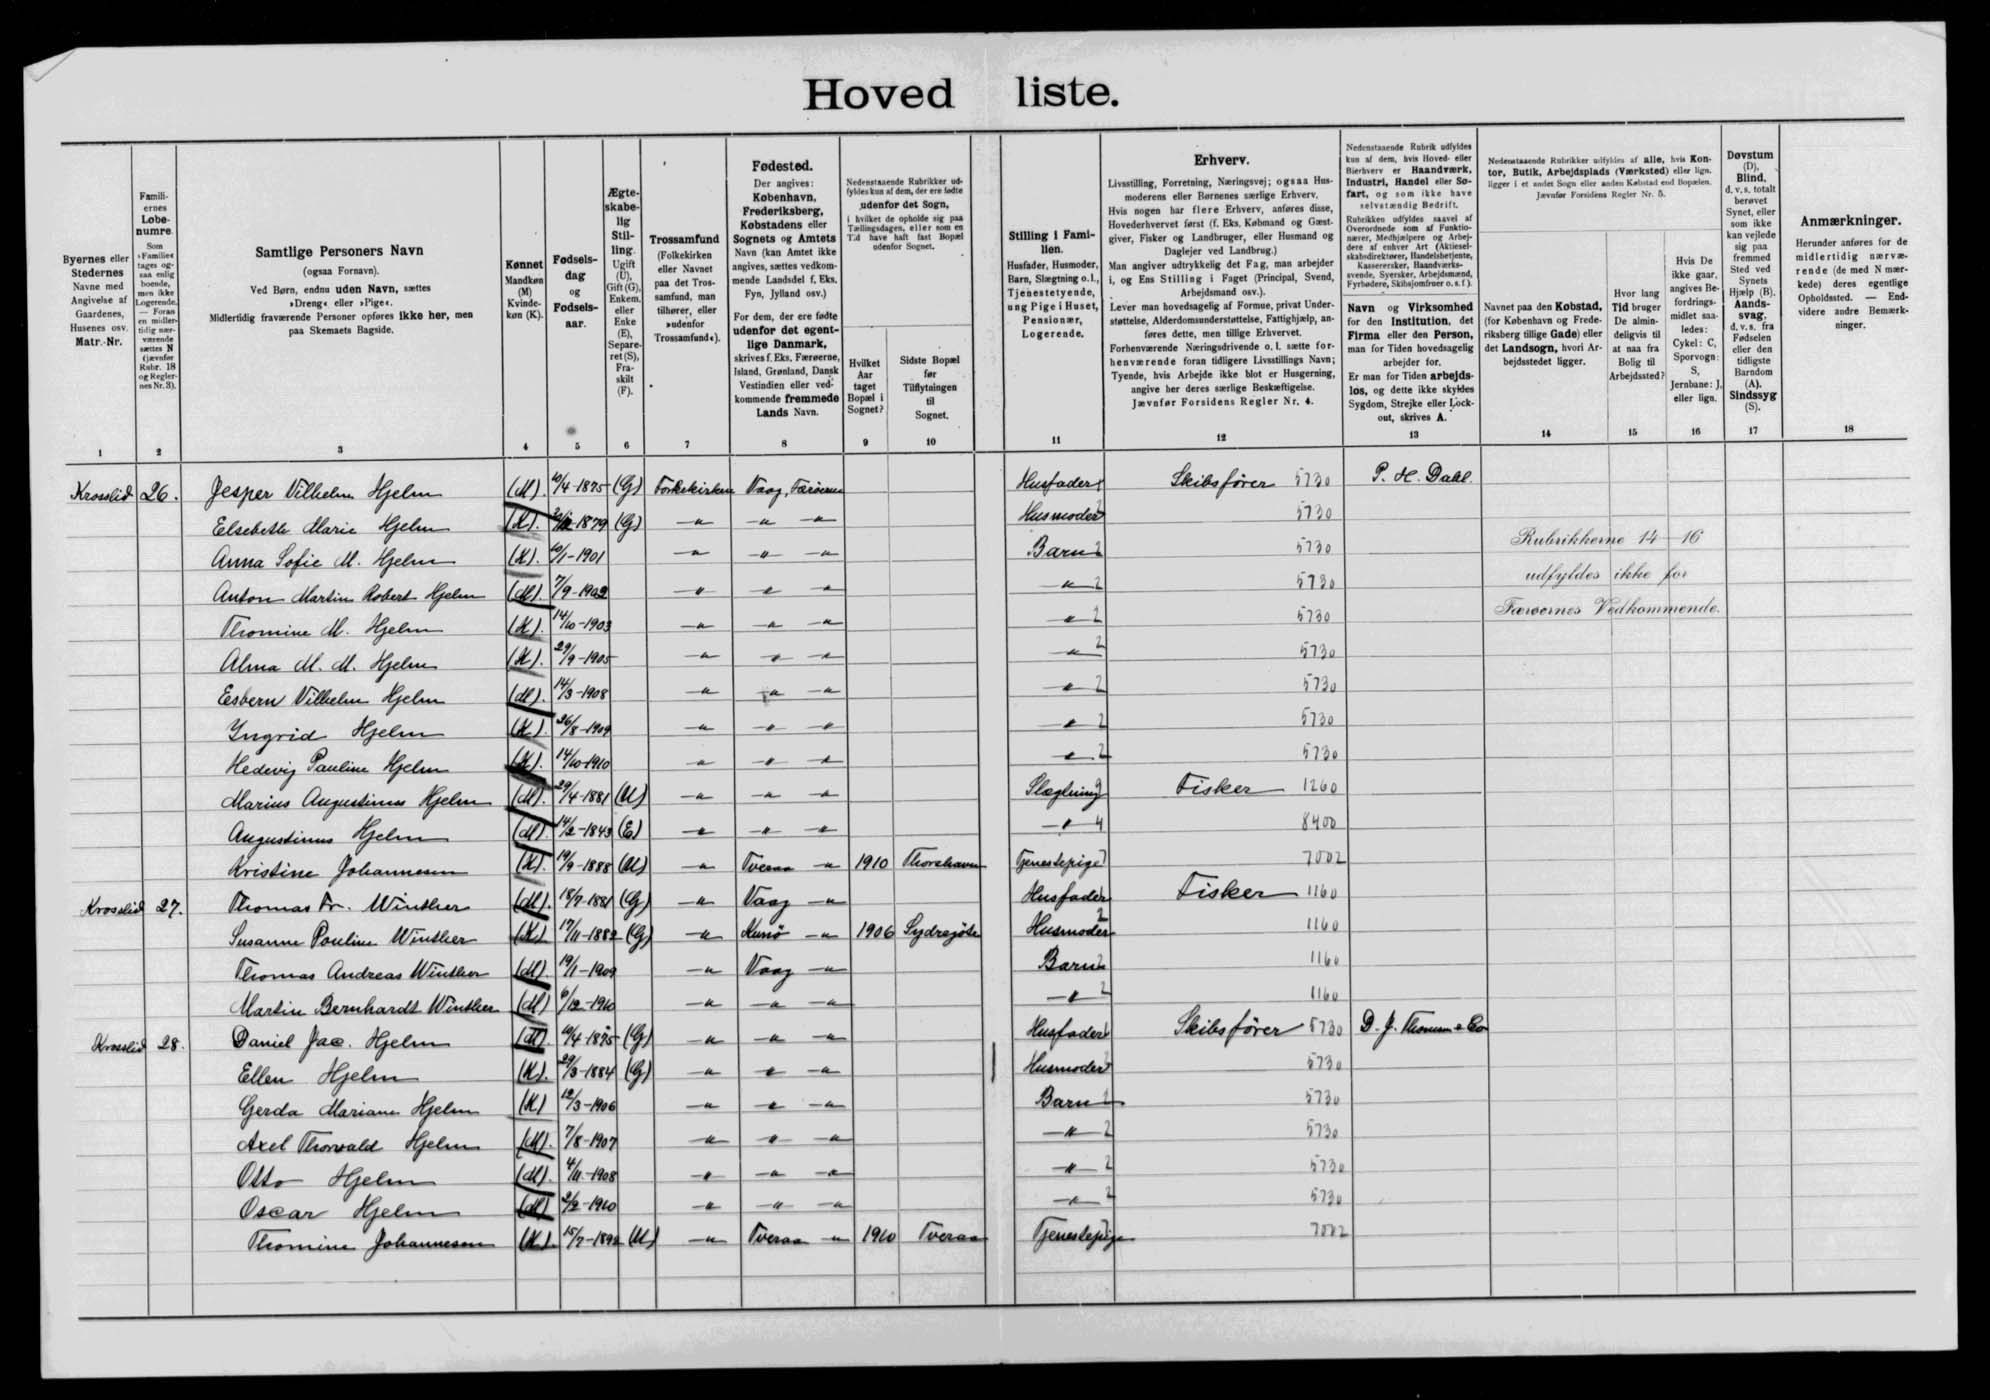 Hovedliste.
Byernes eller Stedernes Navne med Angivelse af Gaardenes, Husenes osv. Matr.-Nr.
1
Familiernes Løbenumre.
Som »Familie« tages ogsaa enlig boende, men ikke Logerende. — Foran en midlertidig nærværende sættes N (jævnfør Rubr. 18 og Reglernes Nr. 3).
2
Samtlige Personers Navn
(ogsaa Fornavn).
Ved Børn, endnu uden Navn, sættes »Dreng« eller »Pige«.
Midlertidig fraværende Personer opføres ikke her, men paa Skemaets Bagside.
3
Kønnet
Mandkøn (M)
Kvindekøn (K).
4
Fødselsdag og Fødselsaar.
5
Ægteskabelig Stilling.
Ugift (U), Gift (G), Enkem. eller Enke (E), Separeret (S), Fraskilt (F).
6
Trossamfund
(Folkekirken eller Navnet paa det Trossamfund, man tilhører, eller »udenfor Trossamfund«).
7
Fødested.
Der angives: København, Frederiksberg, Købstadens eller Sognets og Amtets Navn (kan Amtet ikke angives, sættes vedkommende Landsdel f. Eks. Fyn, Jylland osv.)
For dem, der ere fødte udenfor det egentlige Danmark, skrives f. Eks. Færøerne, Island, Grønland, Dansk Vestindien eller vedkommende fremmede Lands Navn.
8
Nedenstaaende Rubrikker udfyldes kun af dem, der ere fødte udenfor det Sogn, i hvilket de opholde sig paa Tællingsdagen, eller som en Tid have haft fast Bopæl udenfor Sognet.
Hvilket Aar taget Bopæl i Sognet?
9
Sidste Bopæl før Tilflytningen til Sognet.
10
Stilling i Familien.
Husfader, Husmoder, Barn, Slægtning o.l., Tjenestetyende, ung Pige i Huset, Pensionær, Logerende.
11
Erhverv.
Livsstilling, Forretning, Næringsvej; ogsaa Husmoderens eller Børnenes særlige Erhverv.
Hvis nogen har flere Erhverv, anføres disse, Hovederhvervet først (f. Eks. Købmand og Gæstgiver, Fisker og Landbruger, eller Husmand og Daglejer ved Landbrug.)
Man angiver udtrykkelig det Fag, man arbejder i, og Ens Stilling i Faget (Principal, Svend, Arbejdsmand osv.).
Lever man hovedsagelig af Formue, privat Understøttelse, Alderdomsunderstøttelse, Fattighjælp, anføres dette, men tillige Erhvervet.
Forhenværende Næringsdrivende o. l. sætte forhenværende foran tidligere Livsstillings Navn; Tyende, hvis Arbejde ikke blot er Husgerning, angive her deres særlige Beskæftigelse.
Jævnfør Forsidens Regler Nr. 4.
12
Nedenstaaende Rubrik udfyldes kun af dem, hvis Hoved- eller Bierhverv er Haandværk, Industri, Handel eller Søfart, og som ikke have selvstændig Bedrift.
Rubrikken udfyldes saavel af Overordnede som af Funktionærer, Medhjælpere og Arbejdere af enhver Art (Aktieselskabsdirektører, Handelsbetjente, Kasserersker, Haandværkssvende, Syersker, Arbejdsmænd, Fyrbødere, Skibsjomfruer o. s. f.).
Navn og Virksomhed for den Institution, det Firma eller den Person, man for Tiden hovedsagelig arbejder for.
Er man for Tiden arbejdsløs, og dette ikke skyldes Sygdom, Strejke eller Lockout, skrives A.
13
Nedenstaaende Rubrikker udfyldes af alle, hvis Kontor, Butik, Arbejdsplads (Værksted) eller lign. ligger i et andet Sogn eller anden Købstad end Bopælen. Jævnfør Forsidens Regler Nr. 5.
Navnet paa den Købstad, (for København og Frederiksberg tillige Gade) eller det Landsogn, hvori Arbejdsstedet ligger.
14
Hvor lang Tid bruger De almindeligvis til at naa fra Bolig til Arbejdssted?
15
Hvis De ikke gaar, angives Befordringsmidlet saaledes: Cykel: C, Sporvogn: S, Jernbane: J, eller lign.
16
Døvstum (D), Blind, d. v. s. totalt berøvet Synet, eller som ikke kan vejlede sig paa fremmed Sted ved Synets Hjælp (B). Aandssvag, d. v. s. fra Fødselen eller den tidligste Barndom (A). Sindssyg (S).
17
Anmærkninger.
Herunder anføres for de midlertidig nærværende (de med N mærkede) deres egentlige Opholdssted. — Endvidere andre Bemærkninger.
18
Krosslid 26. Jesper Vilhelm Hjelm (M). 10/4-1875 (G) Folkekirken Vaag, Færøerne Husfader 1 Skibsfører 5730 P. H. Dahl.
Elsebeth Marie Hjelm (K). -1879 (G) -"- -"- -"- Husmoder 2 5730
Anna Sofie M. Hjelm (K). 10/1-1901 -"- -"- -"- Barn 2 5730
Rubrikkerne 14-16 udfyldes ikke for Færøernes Vedkommende.
Anton Martin Robert Hjelm (M). 7/9-1902 -"- -"- -"- -"- 2 5730
Thomine M. Hjelm (K). 14/10-1903 -"- -"- -"- -"- 2 5730
Alma M. M. Hjelm (K). 29/9-1905 -"- -"- -"- -"- 2 5730
Esbern Vilhelm Hjelm (M). 14/3-1908 -"- -"- -"- -"- 2 5730
Yngrid Hjelm (K). 26/8-1909 -"- -"- -"- -"- 2 5730
Hedevig Pauline Hjelm (K). 14/10-1910 -"- -"- -"- -"- 2 5730
Marius Augustinus Hjelm (M). 29/4-1881 (U) -"- -"- -"- Slægtning Fisker 1260
Augustinus Hjelm (M). 14/2-1843 (E) -"- -"- -"- -"- 4 8400
Kristine Johannesen (K). 19/9-1888 (U) -"- Tveraa -"- 1910 Thorshavn Tjenestepige 7 7002
Krosslid 27. Thomas Fr. Winther (M). 18/7-1881 (G) -"- Vaag -"- Husfader 1 Fisker 1160
Susanne Pauline Winther (K). 17/11-1882 (G) -"- Kunø -"- 1906 Sydregöte Husmoder 2 1160
Thomas Andreas Winther (M). 19/1-1909 -"- Vaag -"- Barn 2 1160
Martin Bernhardt Winther (M) 6/12-1910 -"- -"- -"- -"- 2 1160
Krosslid 28. Daniel Jac. Hjelm (M). 10/4-1875 (G) -"- -"- -"- Husfader 1 Skibsfører 5730 D. J. Thomsen & Co
Ellen Hjelm (K). 29/3-1884 (G) -"- -"- -"- Husmoder 2 5730
Gerda Mariane Hjelm (K) 12/3-1906 -"- -"- -"- Barn 2 5730
Axel Thorvald Hjelm (M). 7/8-1907 -"- -"- -"- -"- 2 5730
Otto Hjelm (M). 4/11-1908 -"- -"- -"- -"- 2 5730
Oscar Hjelm (M) 2/2-1910 -"- -"- -"- -"- 2 5730
Thomine Johannesen (K). 15/7-1892 (U) -"- Tveraa -"- 1910 Tveraa Tjenestepige 7002